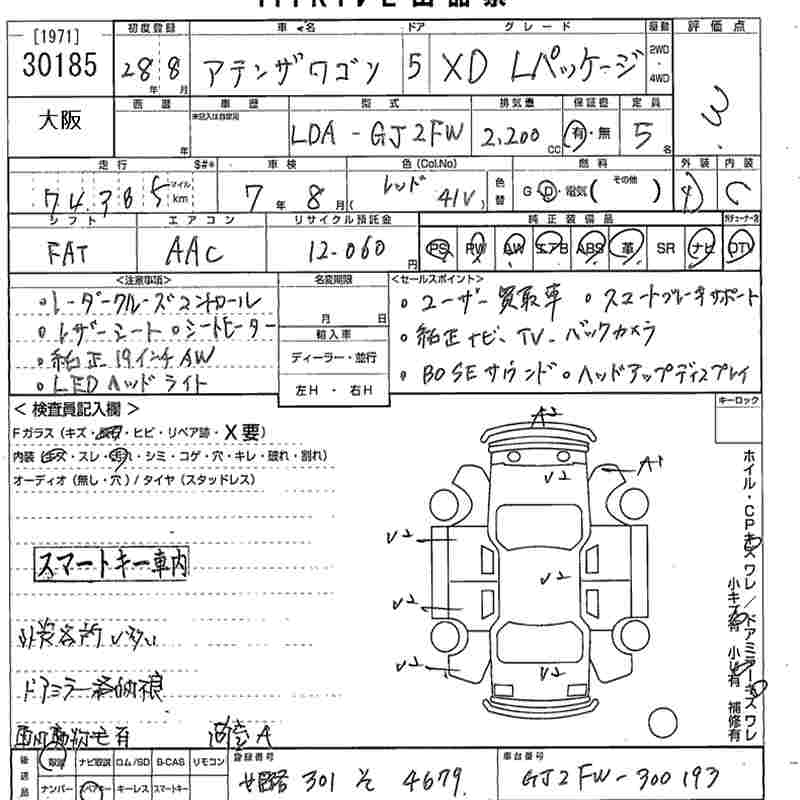 [1971]
30185
初度登録 車名 ドア グレード 駆動 評価点
28年 8月 アテンザワゴン 5 XD Lパッケージ 2WD・4WD 3
大阪
車歴 型式 排気量 保証書 定員
未記入は自家用
LDA-GJ2FW 2,200cc 有・無 5名
走行 S#* 車検 色(Col.No) 色替 燃料 外装 内装
74,385 マイル km 7年 8月 レッド 41V G D・電気( その他 ) 4 C
シフト エアコン リサイクル預託金 純正装備品
FAT AAC 12,060円 PS PW AW エアB ABS 革 SR ナビ DTV
<注意事項> 名変期限 <セールスポイント>
・レーダークルーズコントロール
・レザーシート ・シートヒーター
・純正 19インチAW
・LEDヘッドライト
月 日
輸入車
ディーラー・並行
左H ・ 右H
・ユーザー買取車 ・スマートブレーキサポート
・純正ナビ、TV、バックカメラ
・BOSEサウンド ・ヘッドアップディスプレイ
<検査員記入欄> キーロック
Fガラス(キズ・ ・ヒビ・リペア跡・X要)
内装(キズ・スレ・汚れ・シミ・コゲ・穴・キレ・破れ・割れ)
オーディオ(無し・穴)/タイヤ(スタッドレス)
スマートキー車内
外装各所 いい
ドアミラー格納不良
A2
A1
U2
U2
U2
U2
U2
U2
ホイル・CPキズ ワレ/ドアミラーキズ ワレ
小キズ有 小凹有 補修有
後送品 取説 ナビ取説 ロム/SD B-CAS リモコン
ナンバー スペアキー キーレス スマートキー
登録番号 301 そ 4679
車台番号 GJ2FW-300193